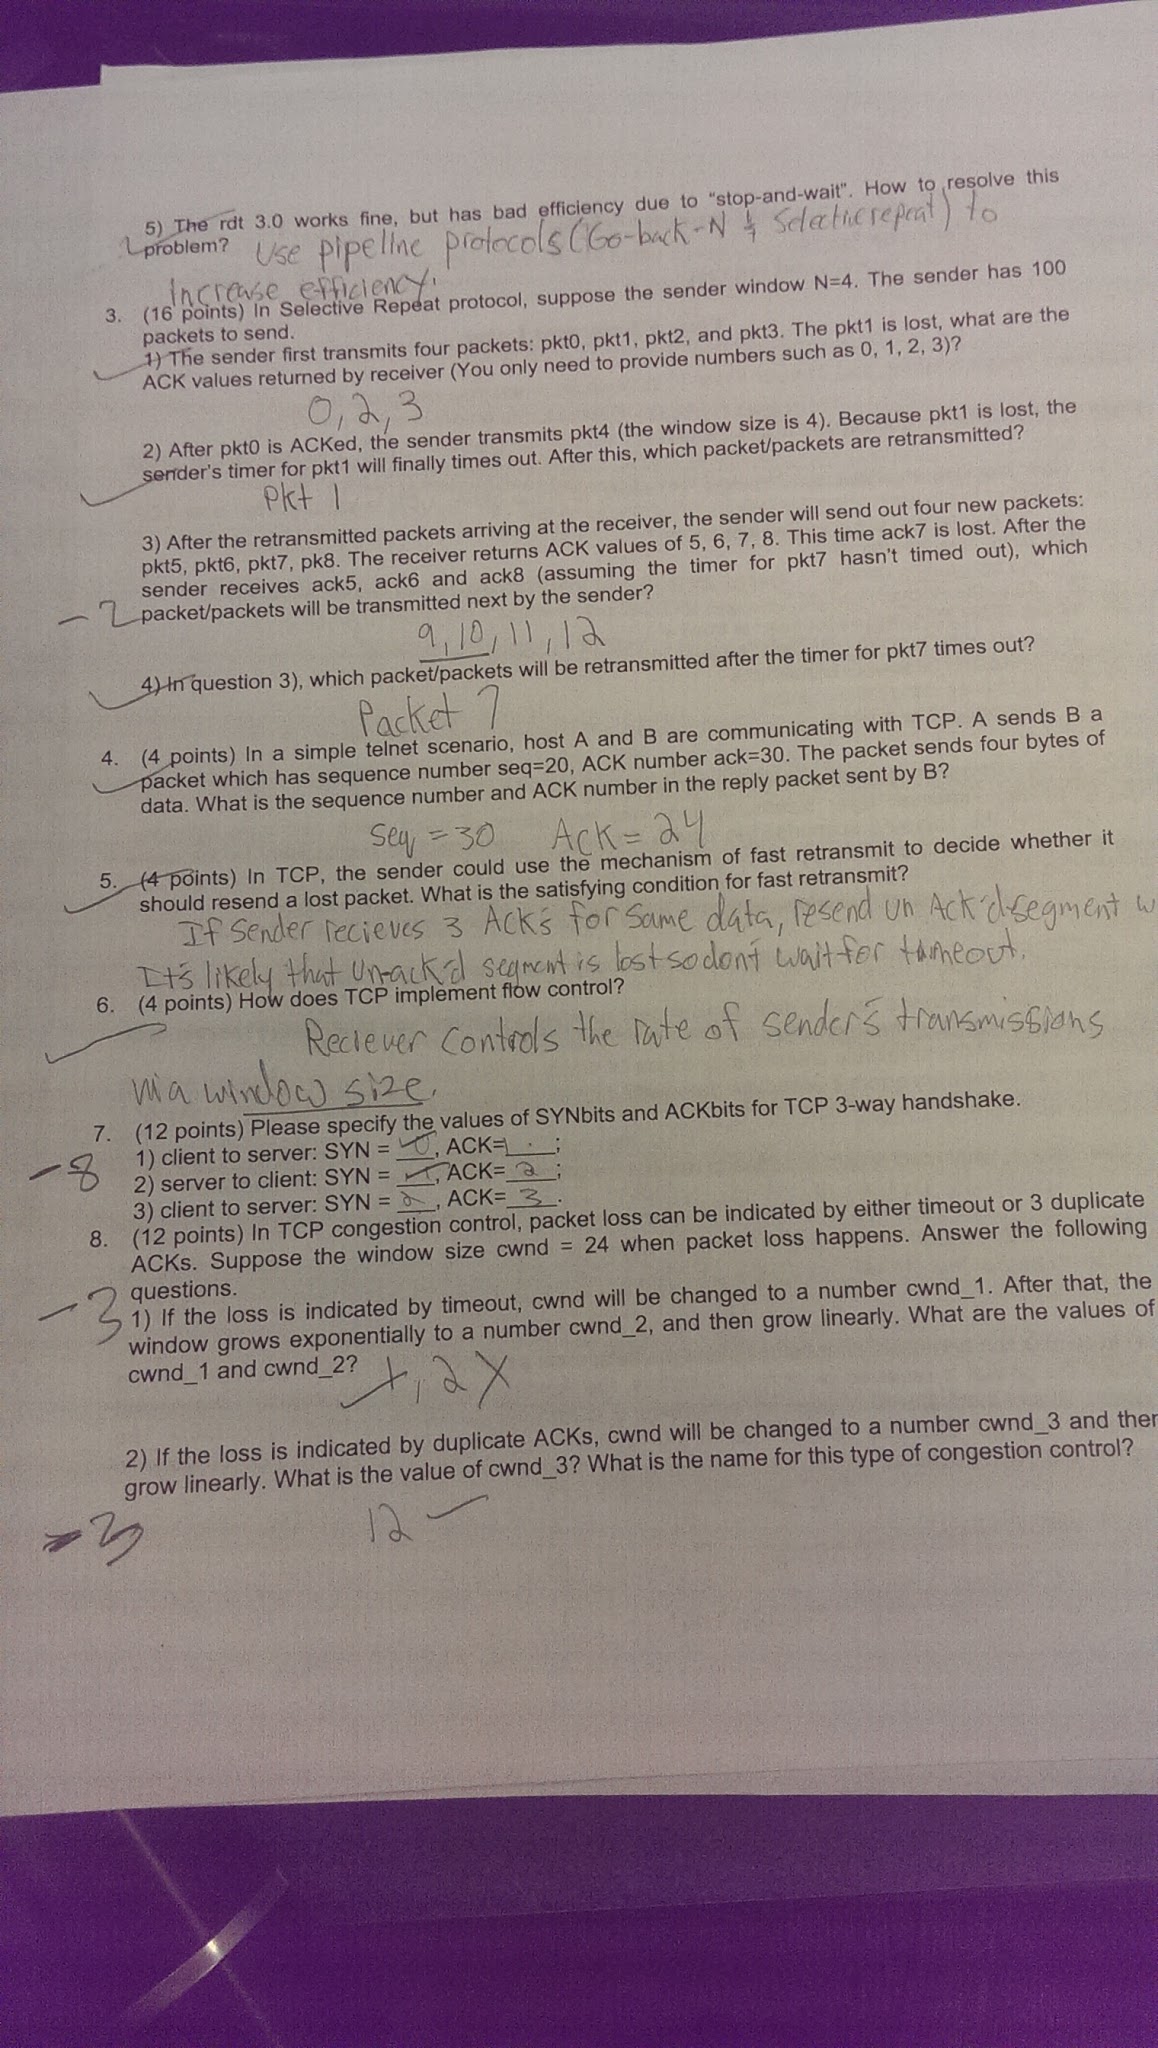 5) The rdt 3.0 works fine, but has bad efficiency due to "stop-and-wait". How to resolve this
problem? Use pipeline protocols (Go-back-N & Selective repeat) to
increase efficiency.
3. (16 points) In Selective Repeat protocol, suppose the sender window N=4. The sender has 100
packets to send.
1) The sender first transmits four packets: pkt0, pkt1, pkt2, and pkt3. The pkt1 is lost, what are the
ACK values returned by receiver (You only need to provide numbers such as 0, 1, 2, 3)?
0, 2, 3
2) After pkt0 is ACKed, the sender transmits pkt4 (the window size is 4). Because pkt1 is lost, the
sender's timer for pkt1 will finally times out. After this, which packet/packets are retransmitted?
Pkt 1
3) After the retransmitted packets arriving at the receiver, the sender will send out four new packets:
pkt5, pkt6, pkt7, pk8. The receiver returns ACK values of 5, 6, 7, 8. This time ack7 is lost. After the
sender receives ack5, ack6 and ack8 (assuming the timer for pkt7 hasn't timed out), which
-2 packet/packets will be transmitted next by the sender?
9, 10, 11, 12
4) In question 3), which packet/packets will be retransmitted after the timer for pkt7 times out?
Packet 7
4. (4 points) In a simple telnet scenario, host A and B are communicating with TCP. A sends B a
packet which has sequence number seq=20, ACK number ack=30. The packet sends four bytes of
data. What is the sequence number and ACK number in the reply packet sent by B?
Seq = 30 ACK = 24
5. (4 points) In TCP, the sender could use the mechanism of fast retransmit to decide whether it
should resend a lost packet. What is the satisfying condition for fast retransmit?
If sender recieves 3 Ack's for same data, resend un Ack'd segment w
It's likely that un-ack'd segment is lost so don't wait for timeout.
6. (4 points) How does TCP implement flow control?
Reciever controls the rate of sender's transmissions
via window size.
7. (12 points) Please specify the values of SYNbits and ACKbits for TCP 3-way handshake.
1) client to server: SYN = 0, ACK=1;
-8 2) server to client: SYN = 1, ACK= 2;
3) client to server: SYN = 2, ACK= 3.
8. (12 points) In TCP congestion control, packet loss can be indicated by either timeout or 3 duplicate
ACKs. Suppose the window size cwnd = 24 when packet loss happens. Answer the following
questions.
-3 1) If the loss is indicated by timeout, cwnd will be changed to a number cwnd_1. After that, the
window grows exponentially to a number cwnd_2, and then grow linearly. What are the values of
cwnd_1 and cwnd_2? 1, 2X
2) If the loss is indicated by duplicate ACKs, cwnd will be changed to a number cwnd_3 and then
grow linearly. What is the value of cwnd_3? What is the name for this type of congestion control?
-3 12